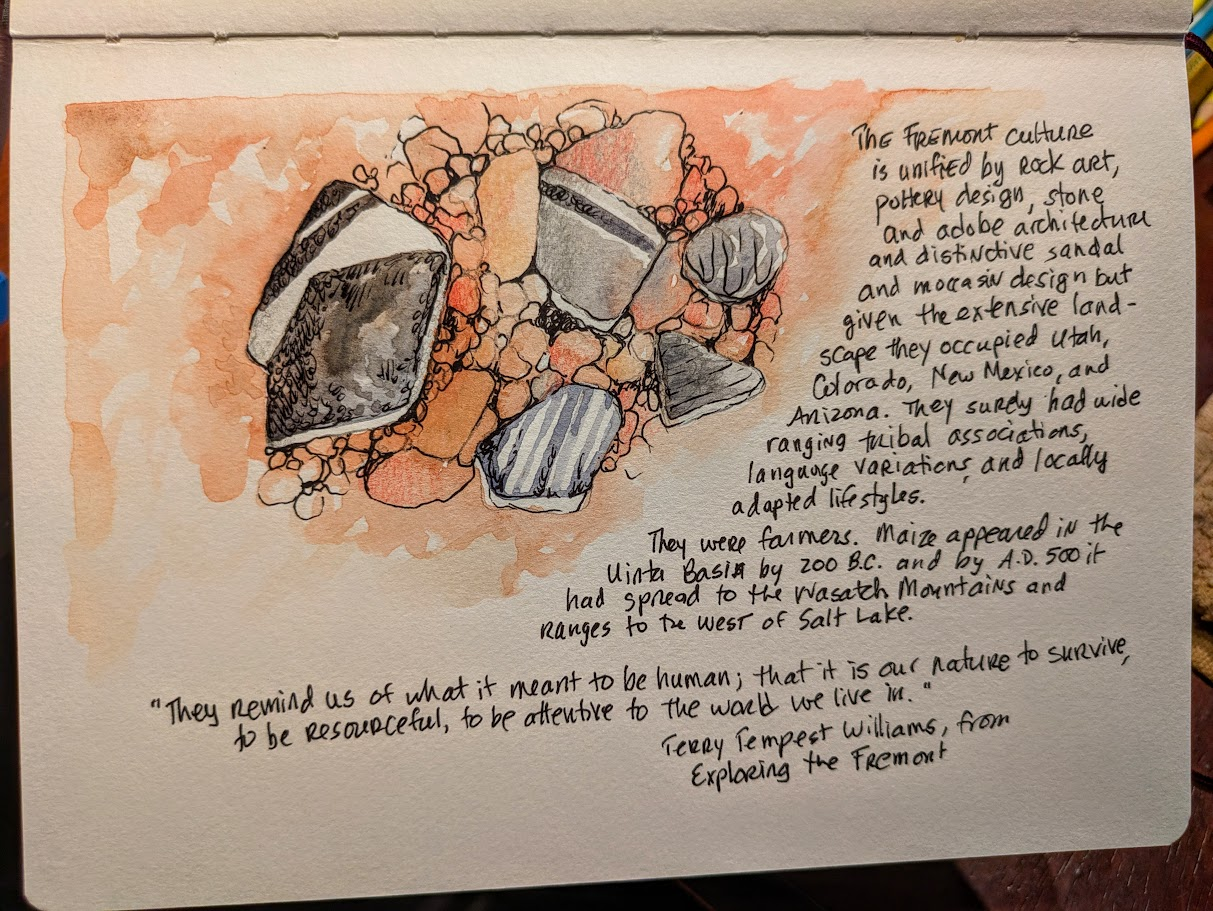 The Fremont culture
is unified by rock art,
pottery design, stone
and adobe architecture
and distinctive sandal
and moccasin design but
given the extensive land-
scape they occupied Utah,
Colorado, New Mexico, and
Arizona. They surely had wide
ranging tribal associations,
language variations, and locally
adapted lifestyles.
They were farmers. Maize appeared in the
Uinta Basin by 200 B.C. and by A.D. 500 it
had spread to the Wasatch Mountains and
ranges to the west of Salt Lake.
"They remind us of what it meant to be human; that it is our nature to survive,
to be resourceful, to be attentive to the world we live in."
Terry Tempest Williams, from
Exploring the Fremont